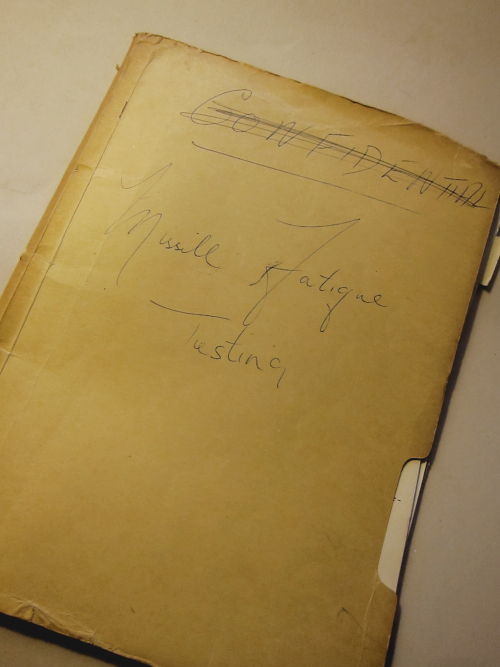 CONFIDENTIAL
Missile Fatigue
Testing